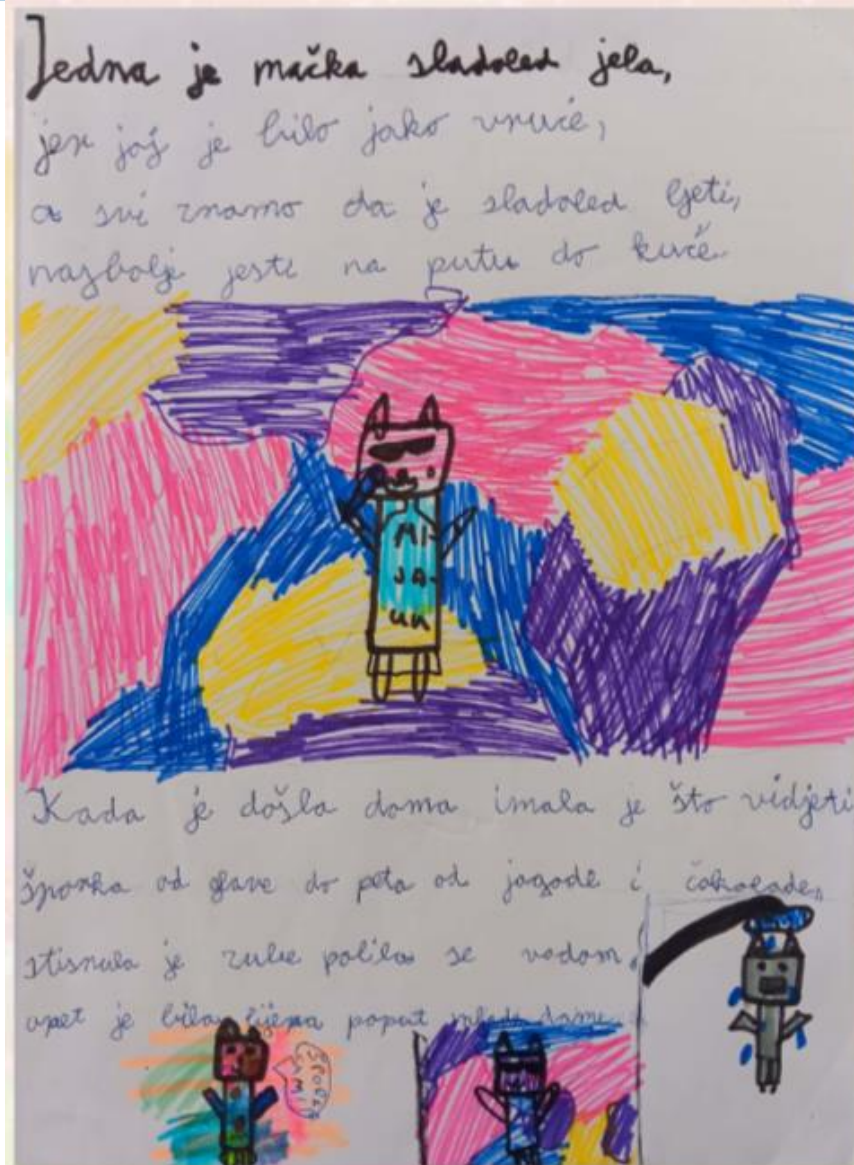 Jedna je mačka sladoled jela,
jer joj je bilo jako vruće,
a svi znamo da je sladoled ljeti,
najbolje jesti na putu do kuće.
MI-
JA-
UU
Kada je došla doma imala je što vidjeti
šporka od glave do peta od jagode i čokolade,
stisnula je zube polila se vodom,
opet je bila lijepa poput mlade dame
ŠPORKA
SAM!